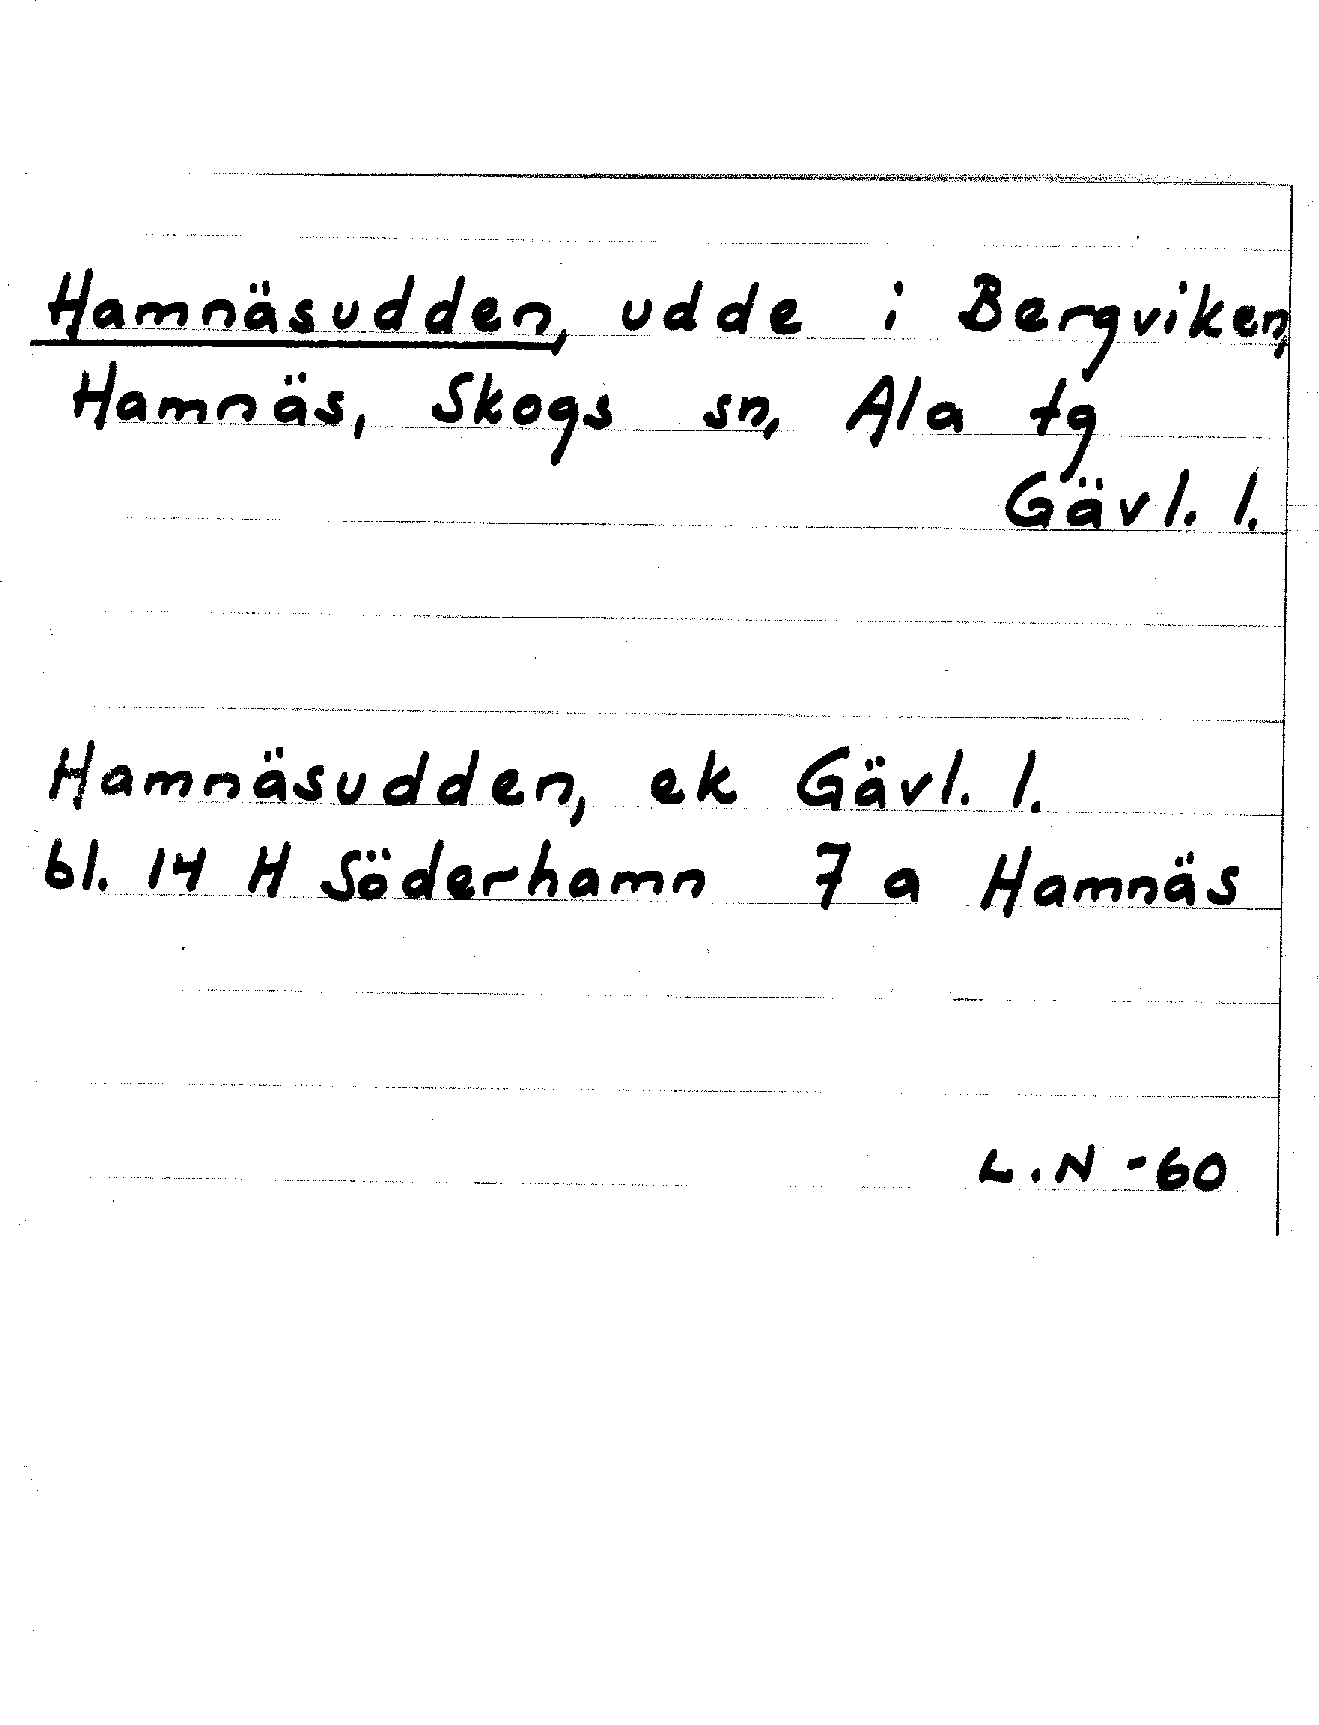 Hamnäsudden, udde i Bergviken,
Hamnäs, Skogs sn, Ala tg
Gävl. l.
Hamnäsudden, ek Gävl. l.
bl. 14 H Söderhamn 7 a Hamnäs
L.N -60